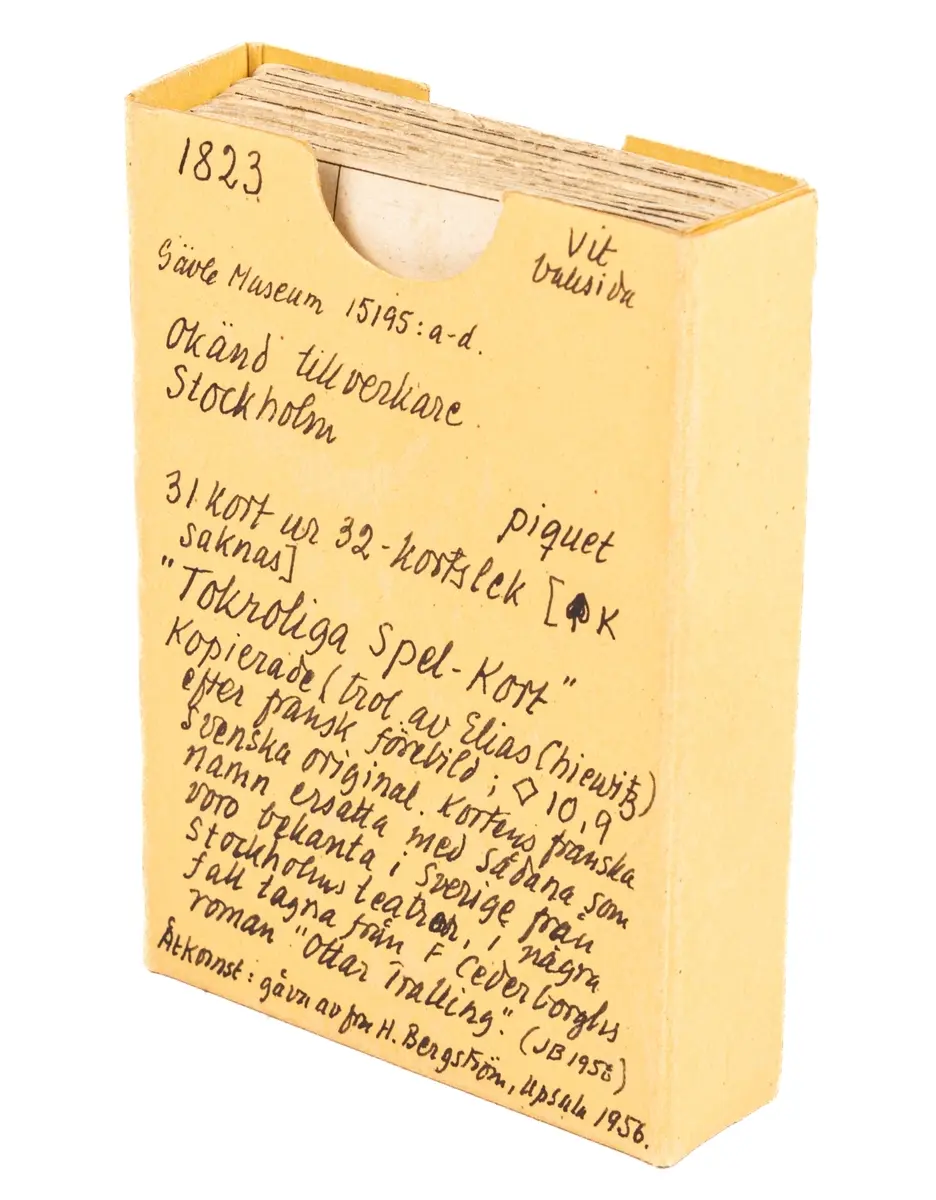 1823
Vit
baksida
Gävle Museum 15195:a-d.
Okänd tillverkare.
Stockholm
piquet
31 kort ur 32-kortslek [♠K
saknas]
"Tokroliga Spel-Kort"
Kopierade (trol. av Elias Chiewitz)
efter fransk förebild; ◇ 10, 9
svenska original. Kortens franska
namn ersatta med sådana som
voro bekanta i Sverige från
Stockholms teatrar, i några
fall tagna från F Cederborghs
roman "Ottar Tralling". (JB 1956)
Åtkomst: gåva av fru H. Bergström, Upsala 1956.